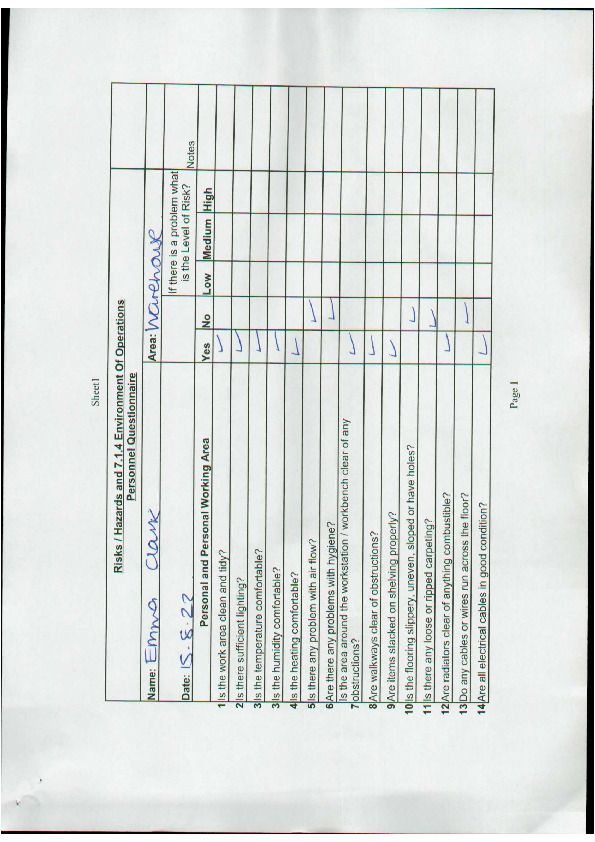 Sheet1
Risks / Hazards and 7.1.4 Environment Of Operations
Personnel Questionnaire
Name: Emma Clark Area: Warehouse
Date: 15.8.22 If there is a problem what is the Level of Risk? Notes
Personal and Personal Working Area Yes No Low Medium High
1 Is the work area clean and tidy? ✓
2 Is there sufficient lighting? ✓
3 Is the temperature comfortable? ✓
3 Is the humidity comfortable? ✓
4 Is the heating comfortable? ✓
5 Is there any problem with air flow? ✓
6 Are there any problems with hygiene? ✓
Is the area around the workstation / workbench clear of any
7 obstructions? ✓
8 Are walkways clear of obstructions? ✓
9 Are items stacked on shelving properly? ✓
10 Is the flooring slippery, uneven, sloped or have holes? ✓
11 Is there any loose or ripped carpeting? ✓
12 Are radiators clear of anything combustible? ✓
13 Do any cables or wires run across the floor? ✓
14 Are all electrical cables in good condition? ✓
Page 1